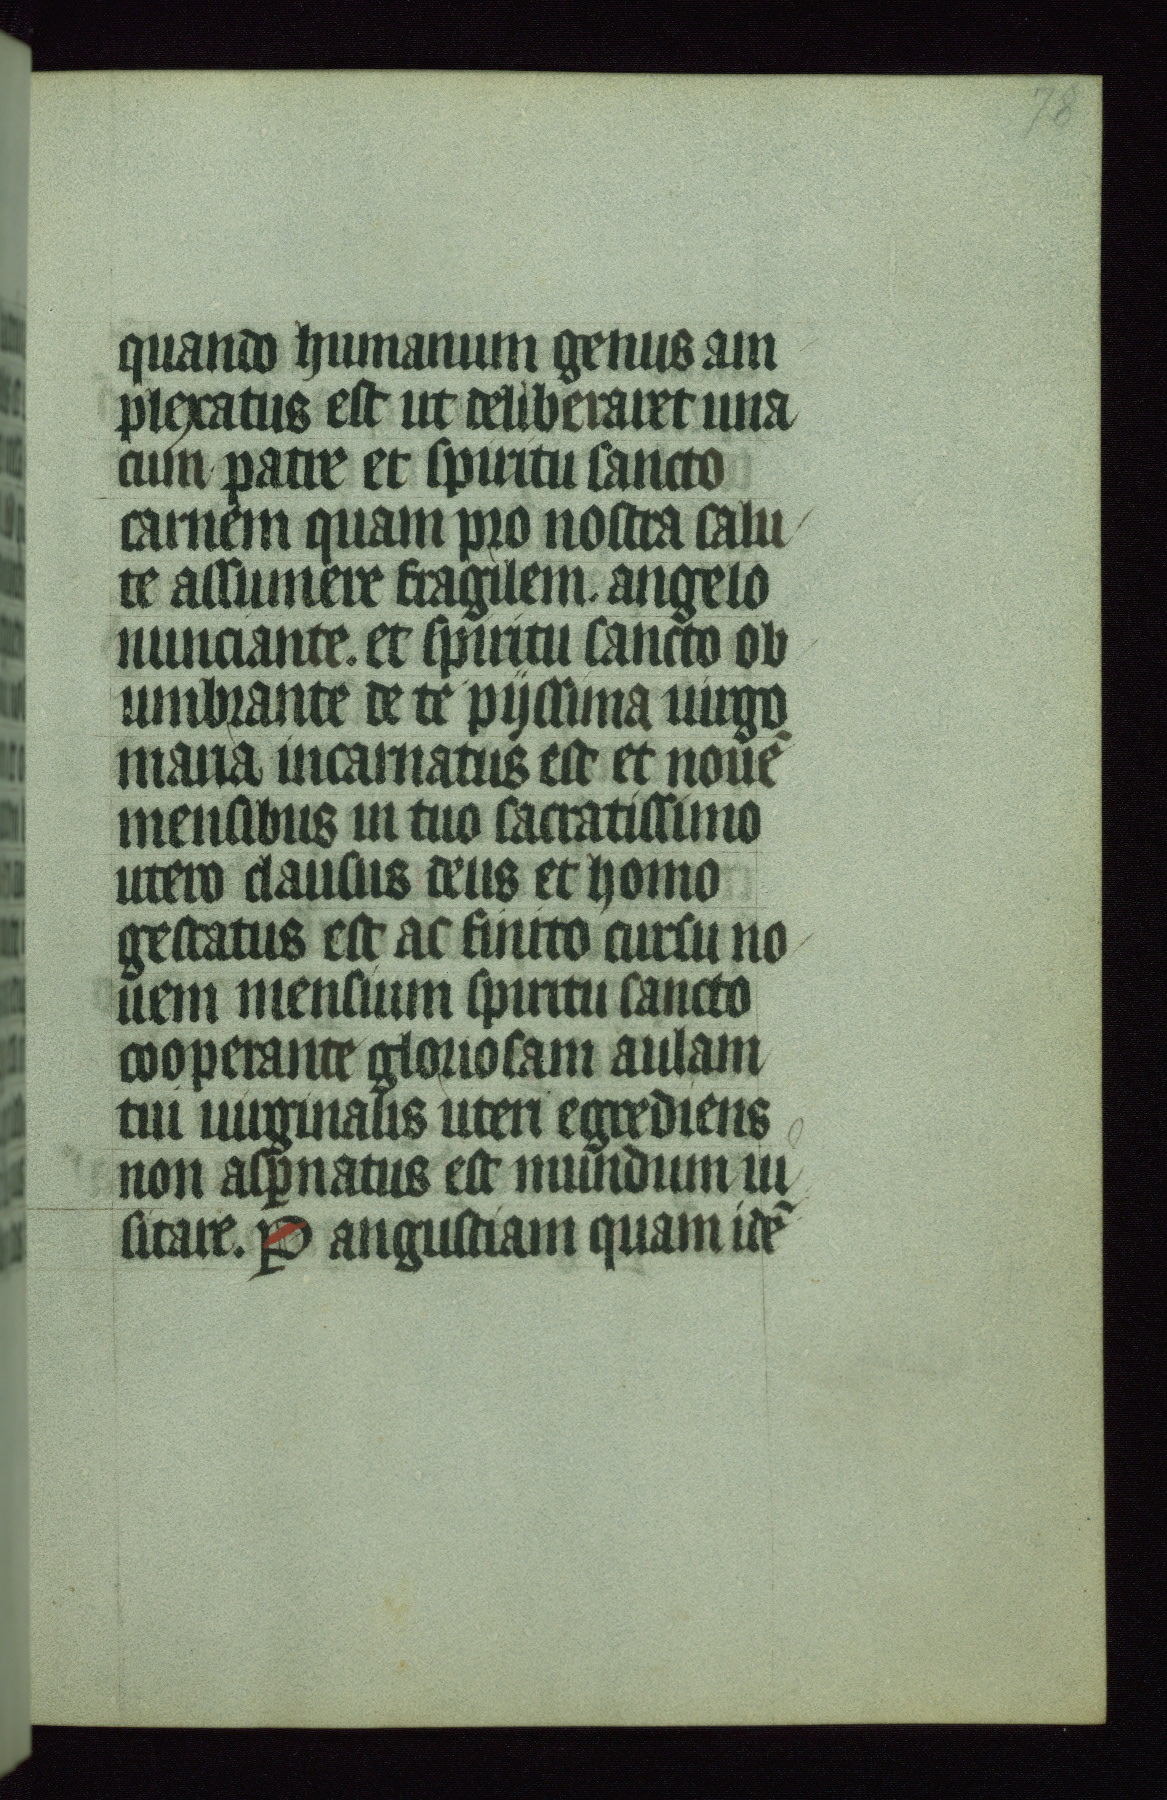 78
quando humanum genus am
plexatus est ut deliberaret una
cum patre et spiritu sancto
carnem quam pro nostra salu
te assumere fragilem. angelo
nunciante. et spiritu sancto ob
umbrante de te pijssima uirgo
maria incarnatus est et nouē
mensibus in tuo sacratissimo
utero clausus deus et homo
gestatus est ac finito cursu no
uem mensium spiritu sancto
cooperante gloriosam aulam
tui uirginalis uteri egrediens
non aspnatus est mundum ui
sitare. P angustiam quam idē